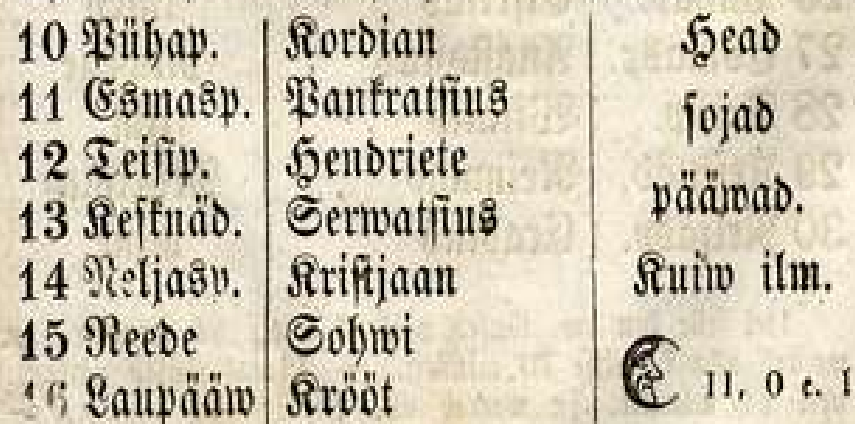 10 Pühap. Kordian Head
11 Esmasp. Pankratsius sojad
12 Teisip. Hendriete pääwad.
13 Kesknäd. Serwatsius
14 Neljasp. Kristjaan Kuiw ilm.
15 Reede Sohwi
16 Laupääw Krööt 11, 0 e. l